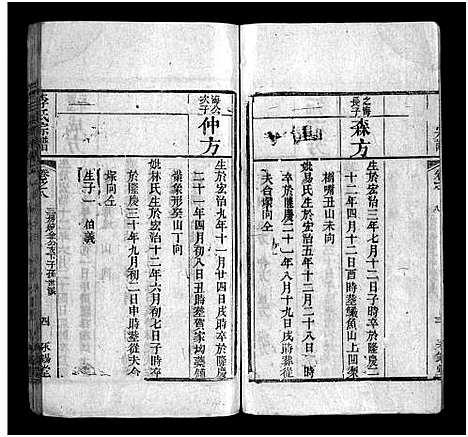 之海
長子
森方
生於宏治三年七月十二日子時卒於隆慶
十二年四月十二日酉時塟鱶魚山上凹樹
嘴丑山未向
妣易氏生於宏治五年十三月二十八日
卒於隆慶二十一年八月十九日戌時塟
夫合塚向仝
海公
次子
仲方
生於宏治九年十一月廿四日戌時卒於隆慶
二十一年四月初八日丑時塟賀家坳
象形癸山丁向
妣林氏生於宏治十二年六月初七日子時卒
於隆慶三十年九月初二日申時塟從夫合
塚向仝
生子一 伯義
李氏宗譜
卷之八
四